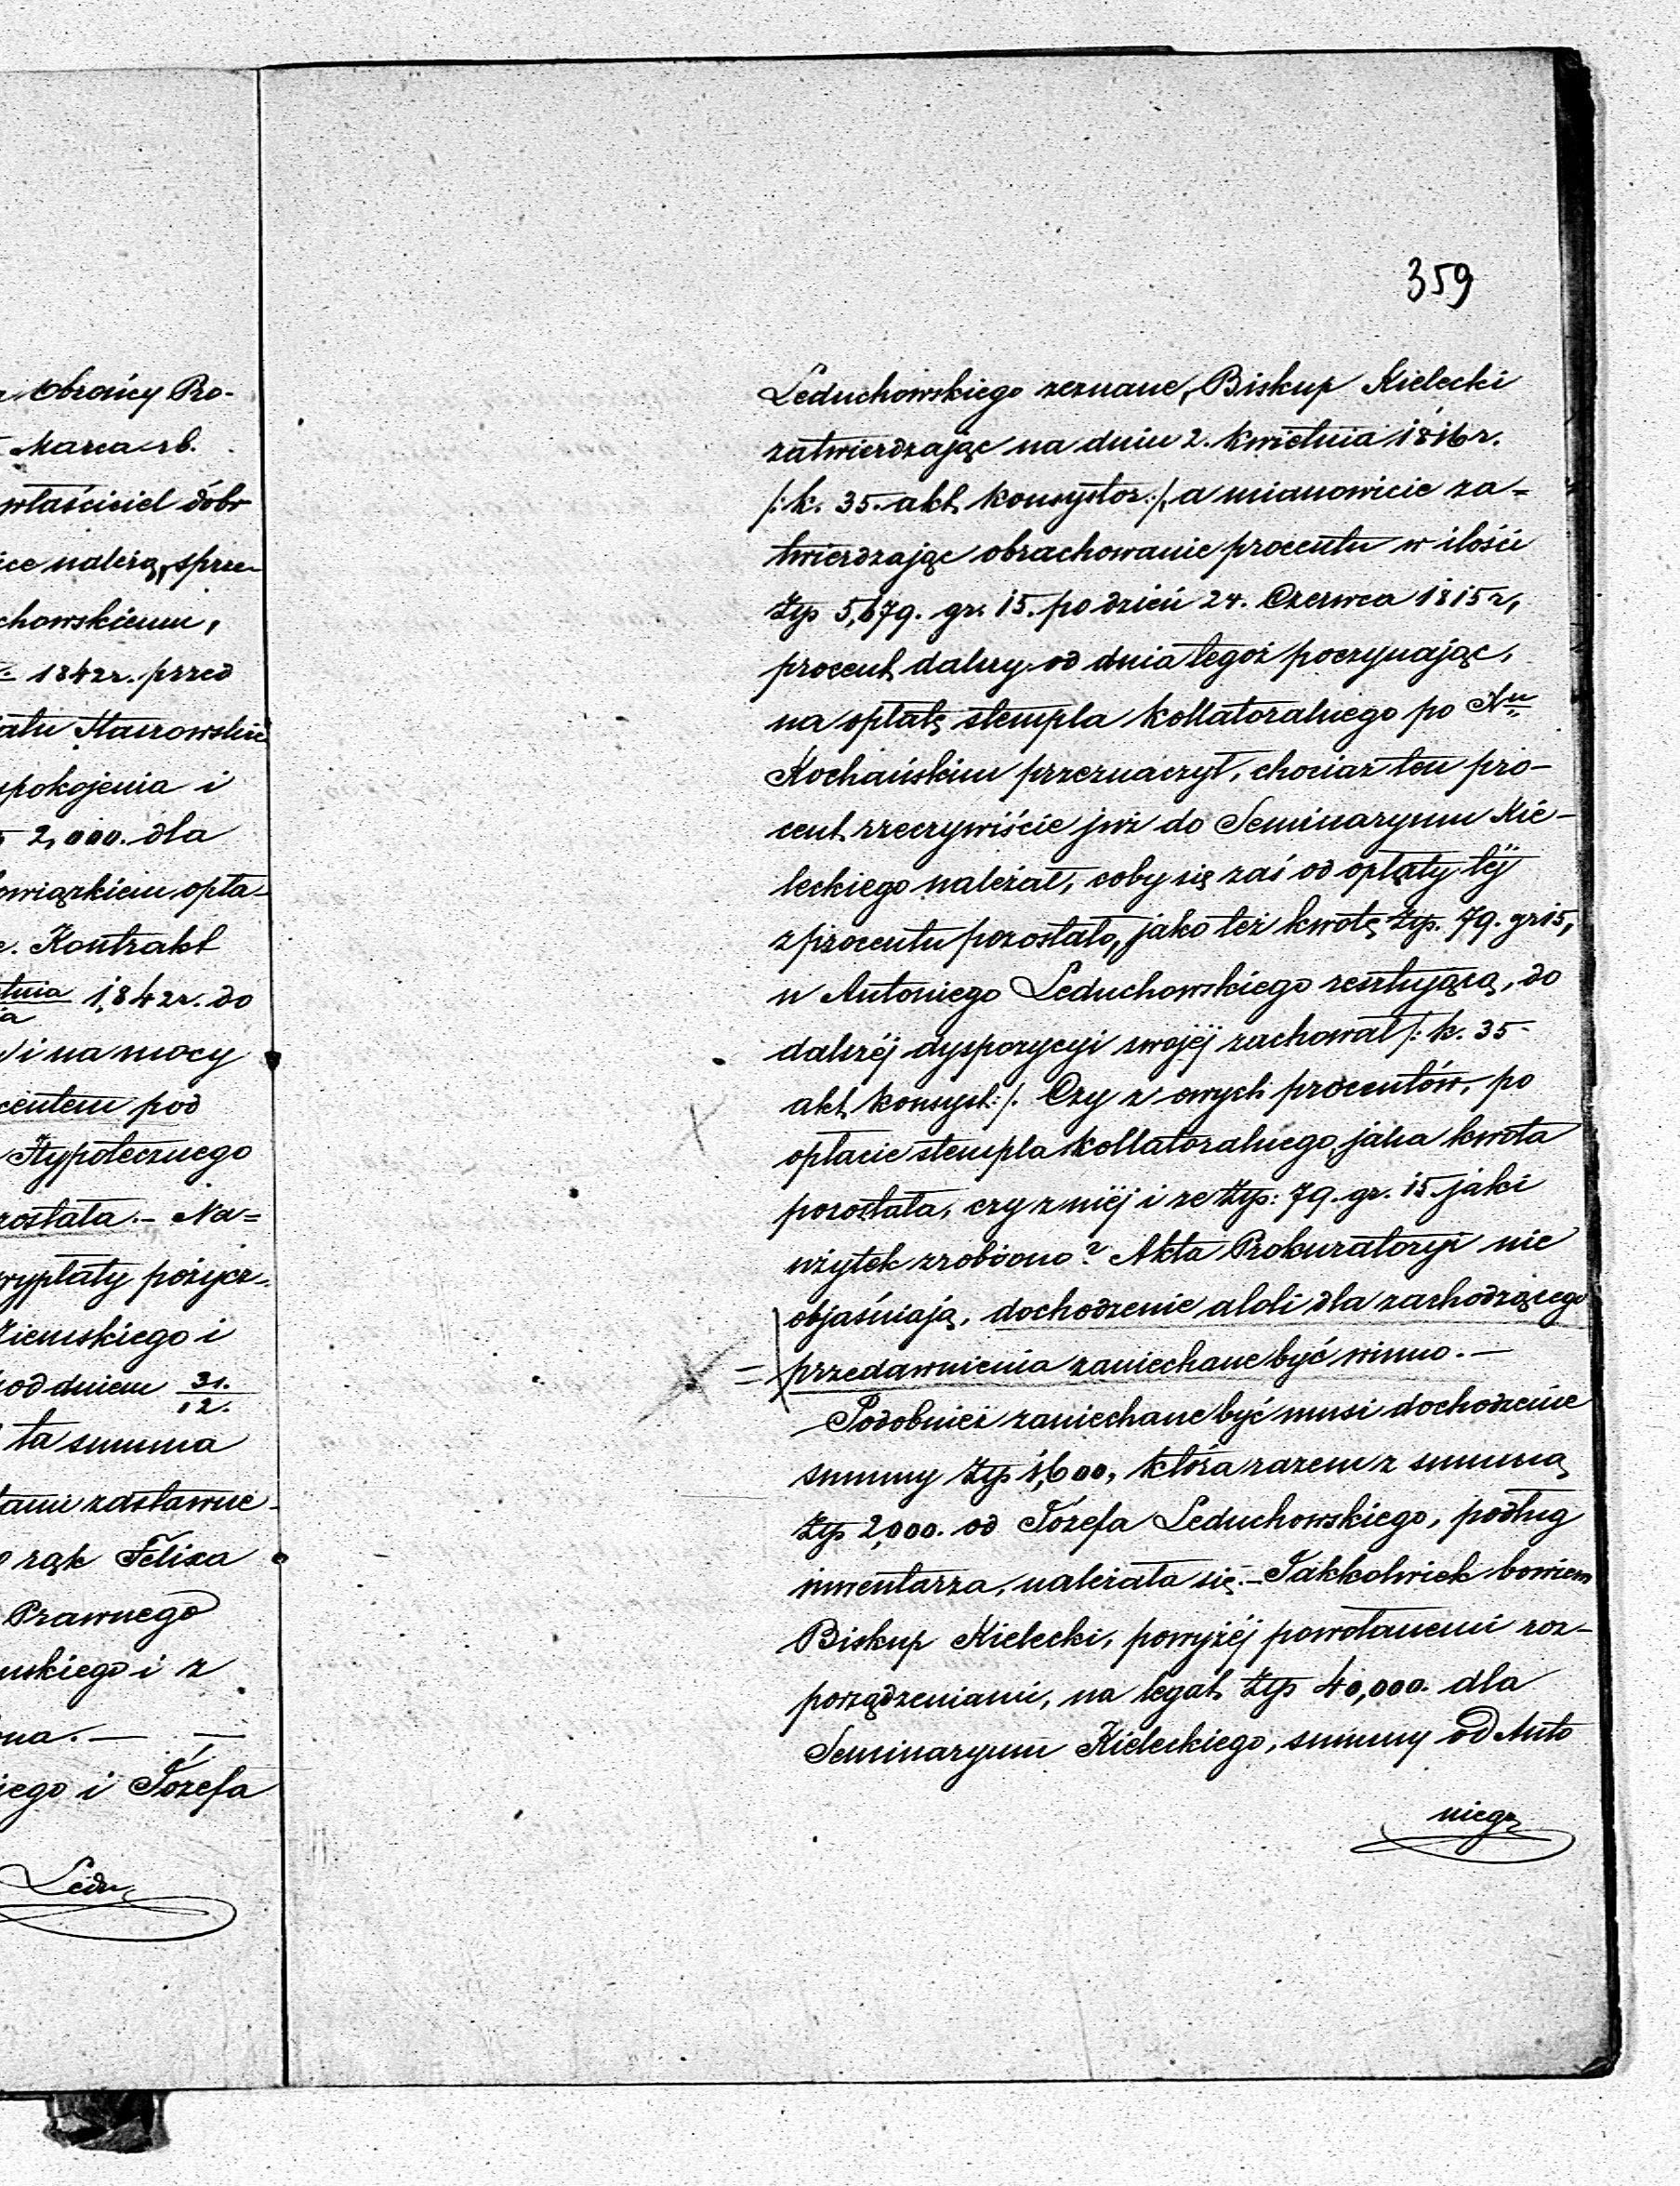 a Obrońcy Pro-
Marca rb.
właściciel dóbr
ice należą, sprze-
chowskiemu,
1842 r. przed
atu Staszowskie
spokojenia i
2,000. dla
owiązkiem opła-
Kontrakt
tnia 1842 r. do
i na mocy
centem pod
Hypotecznego
zostata. - Na=
wypłaty pożycz-
Ziemskiego i
od dniem 31./12.
ta summa
tami zastawne-
rąk Felixa
Prawnego
mskiego i z
ona. — —
iego i Józefa
Ledu
359
Leduchowskiego zeznane, Biskup Kielecki
zatwierdzając na dniu 2. Kwietnia 1816 r.
/: k. 35. akt konsystor. :/, a mianowicie za=
twierdzając obrachowanie procentu w ilości
Złp 5,679. gr. 15. po dzień 24. Czerwca 1815 r,
procent dalszy od dnia tegoż poczynając,
na opłatę stempla kollateralnego po Xu
Kochańskim przeznaczył, chociaż ten pro-
cent rzeczywiście już do Seminaryum Kie-
leckiego należał, coby się zaś od opłaty téj
z procentu pozostało, jako też kwotę Złp. 79. gr 15,
u Antoniego Leduchowskiego resztującą, do
dalszéj dyspozycyi swojéj zachował /: k. 35
akt konsyst: /. Czy z owych procentów, po
opłacie stempla kollateralnego jaka kwota
pozostała, czy z niéj i ze Złp: 79. gr. 15. jaki
użytek zrobiono? Akta Prokuratoryi nie
objaśniają, dochodzenie atoli dla zachodzącego
= przedawnienia zaniechane być winno. —
Podobnież zaniechane być musi dochodzenie
summy Złp 1,600, która razem z summą
Złp 2,000. od Józefa Leduchowskiego, podług
inwentarza, należała się. - Jakkolwiek bowiem
Biskup Kielecki, powyżéj powołanemi roz-
porządzeniami, na legat Złp 40,000. dla
Seminaryum Kieleckiego, summy od Anto
niego